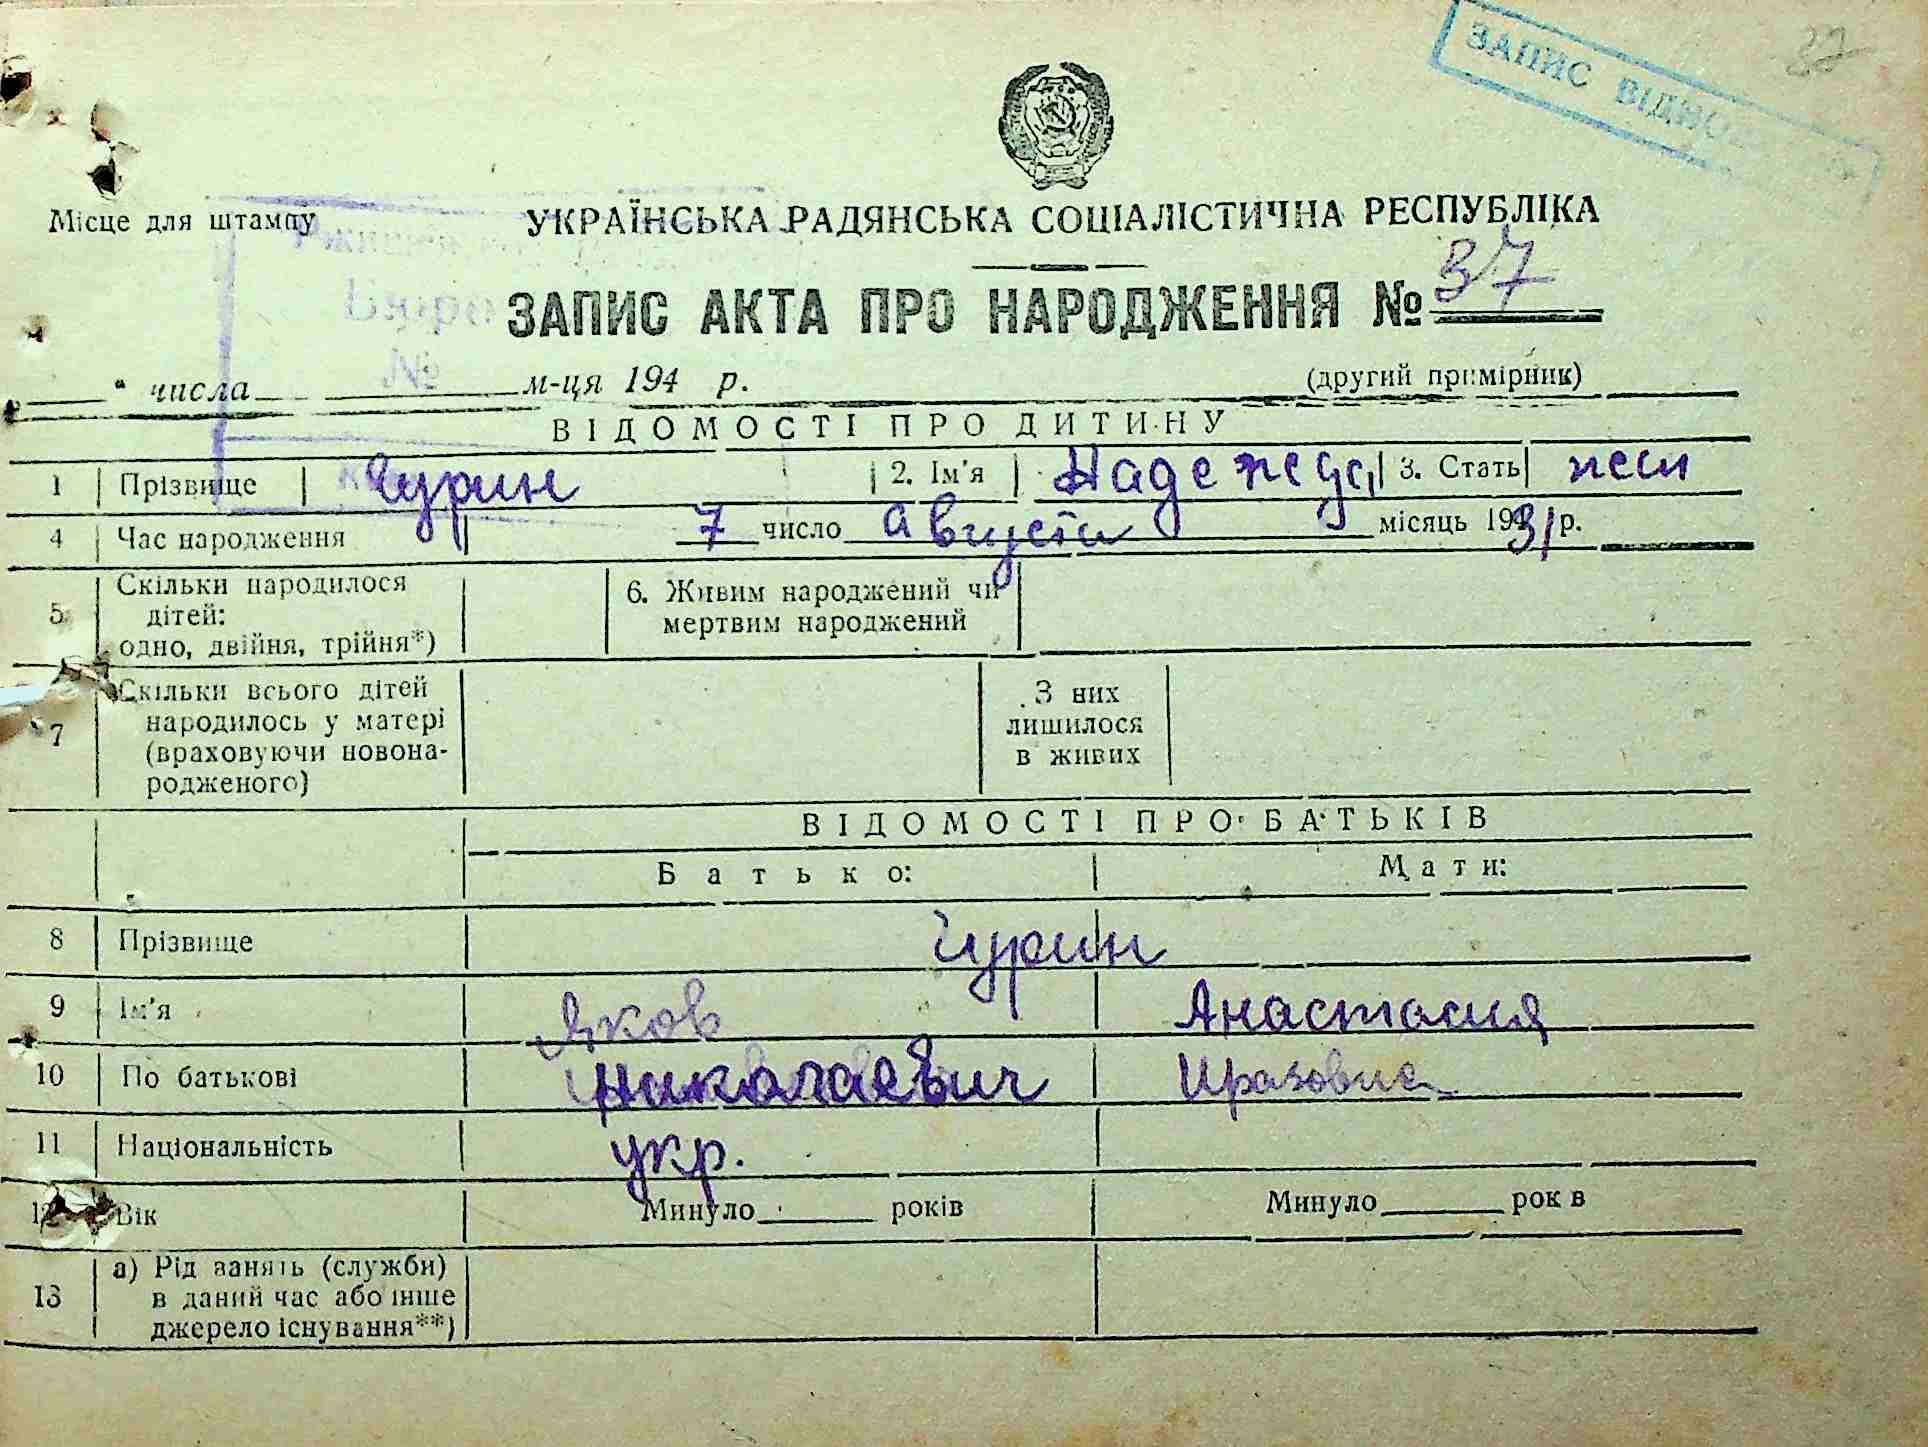 37
ЗАПИС ВІДНО
Місце для штампу
УКРАЇНСЬКА РАДЯНСЬКА СОЦІАЛІСТИЧНА РЕСПУБЛІКА
Бюро
№
ЗАПИС АКТА ПРО НАРОДЖЕННЯ № 37
" числа м-ця 194 р.
(другий примірник)
ВІДОМОСТІ ПРО ДИТИНУ
1 Прізвище Чурин 2. Ім'я Надежда 3. Стать жен
4 Час народження 7 число Августа місяць 1931 р.
5 Скільки народилося дітей: одно, двійня, трійня*)
6. Живим народжений чи мертвим народжений
7 Скільки всього дітей народилось у матері (враховуючи новона-родженого)
З них лишилося в живих
ВІДОМОСТІ ПРО БАТЬКІВ
Батько: Мати:
8 Прізвище Чурин
9 Ім'я Яков Анастасия
10 По батькові Николаевич
11 Національність укр.
12 Вік Минуло років Минуло років
13 а) Рід занять (служби) в даний час або інше джерело існування**)